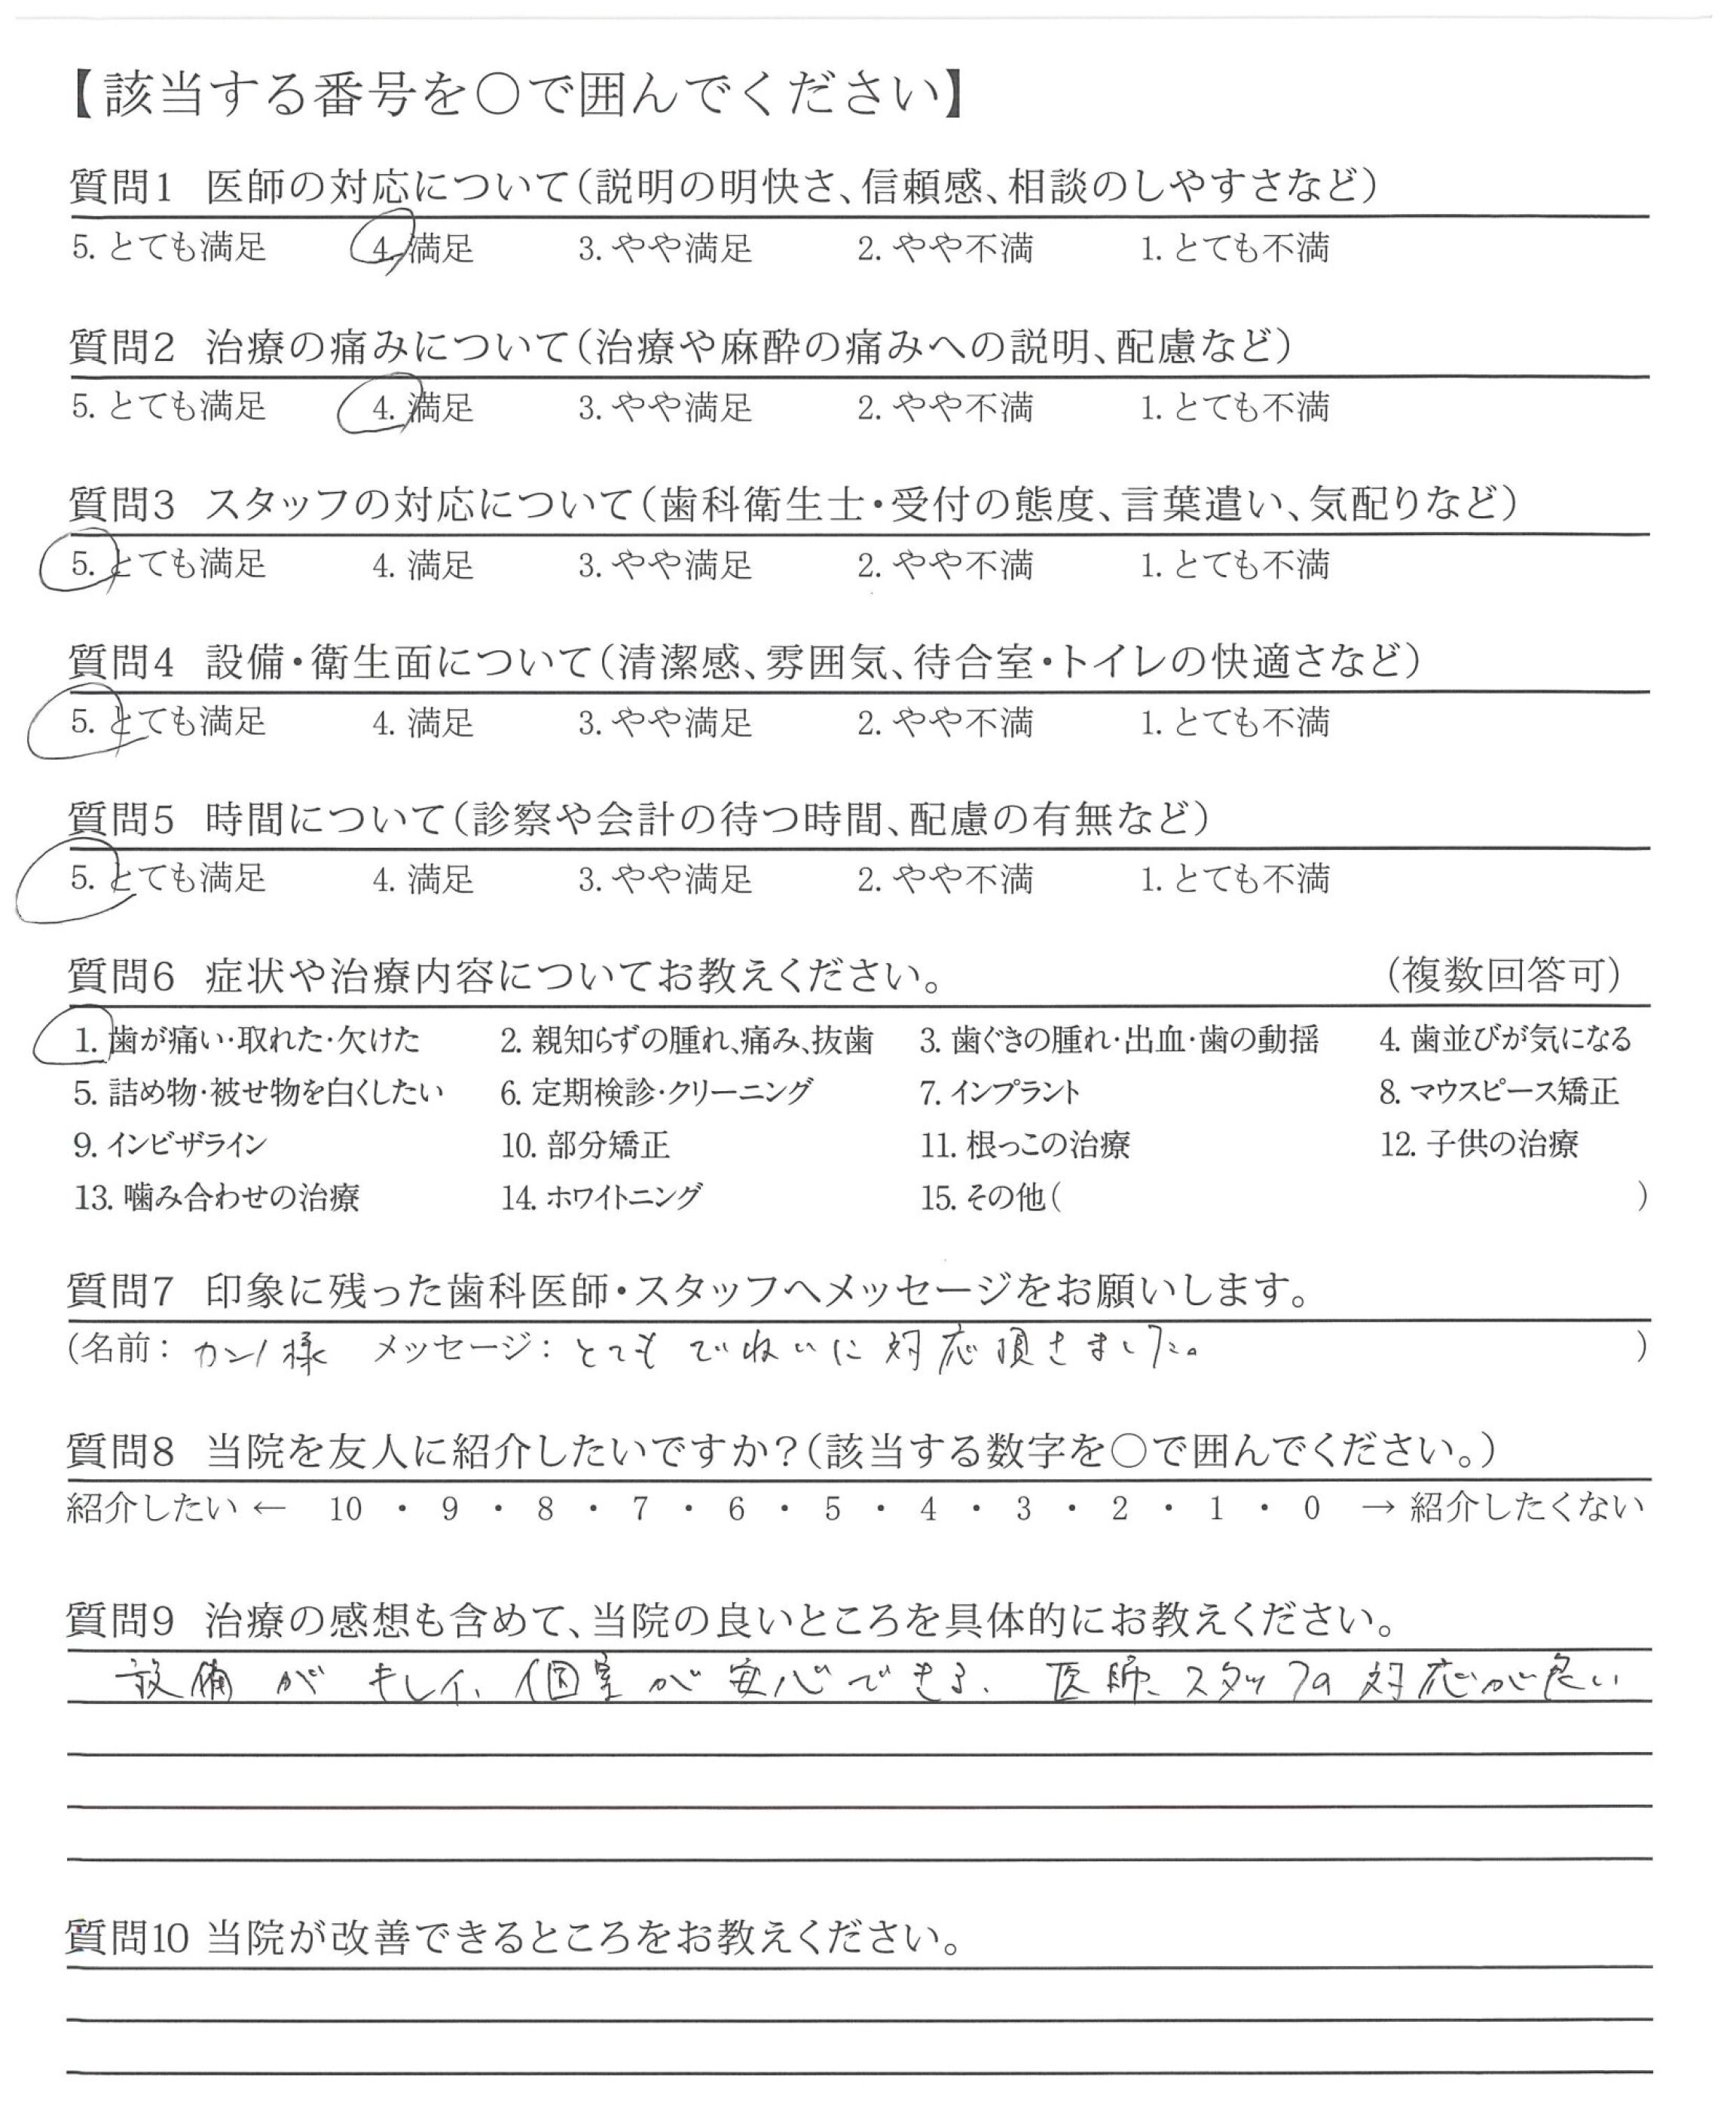 【該当する番号を○で囲んでください】
質問1 医師の対応について(説明の明快さ、信頼感、相談のしやすさなど)
5. とても満足 4. 満足 3. やや満足 2. やや不満 1. とても不満
質問2 治療の痛みについて(治療や麻酔の痛みへの説明、配慮など)
5. とても満足 4. 満足 3. やや満足 2. やや不満 1. とても不満
質問3 スタッフの対応について(歯科衛生士・受付の態度、言葉遣い、気配りなど)
5. とても満足 4. 満足 3. やや満足 2. やや不満 1. とても不満
質問4 設備・衛生面について(清潔感、雰囲気、待合室・トイレの快適さなど)
5. とても満足 4. 満足 3. やや満足 2. やや不満 1. とても不満
質問5 時間について(診察や会計の待つ時間、配慮の有無など)
5. とても満足 4. 満足 3. やや満足 2. やや不満 1. とても不満
質問6 症状や治療内容についてお教えください。 (複数回答可)
1. 歯が痛い・取れた・欠けた 2. 親知らずの腫れ、痛み、抜歯 3. 歯ぐきの腫れ・出血・歯の動揺 4. 歯並びが気になる
5. 詰め物・被せ物を白くしたい 6. 定期検診・クリーニング 7. インプラント 8. マウスピース矯正
9. インビザライン 10. 部分矯正 11. 根っこの治療 12. 子供の治療
13. 噛み合わせの治療 14. ホワイトニング 15. その他( )
質問7 印象に残った歯科医師・スタッフへメッセージをお願いします。
(名前: カンノ様 メッセージ: とても ていねいに 対応頂きました。 )
質問8 当院を友人に紹介したいですか?(該当する数字を○で囲んでください。)
紹介したい ← 10 ・ 9 ・ 8 ・ 7 ・ 6 ・ 5 ・ 4 ・ 3 ・ 2 ・ 1 ・ 0 → 紹介したくない
質問9 治療の感想も含めて、当院の良いところを具体的にお教えください。
設備が キレイ、個室が安心できる、医師、スタッフの対応が良い
質問10 当院が改善できるところをお教えください。